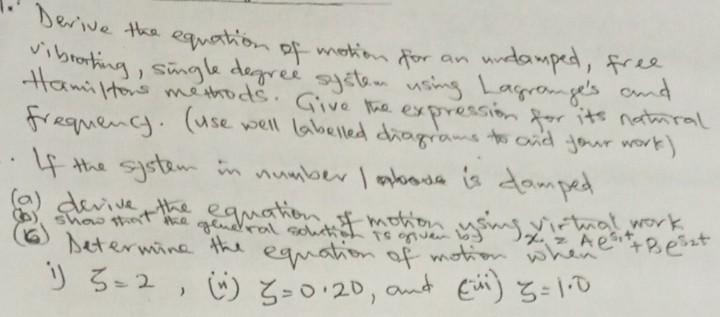 1. Derive the equation of motion for an undamped, free
vibrating, single degree system using Lagrange's and
Hamiltons methods. Give the expression for its natural
frequency. (use well labelled diagrams to aid your work)
. If the system in number 1 above is damped
(a) derive the equation of motion using virtual work
(b) show that the general solution is given by x = Ae^s1t + Be^s2t
(c) Determine the equation of motion when
i) ζ = 2 , (ii) ζ = 0.20, and (iii) ζ = 1.0